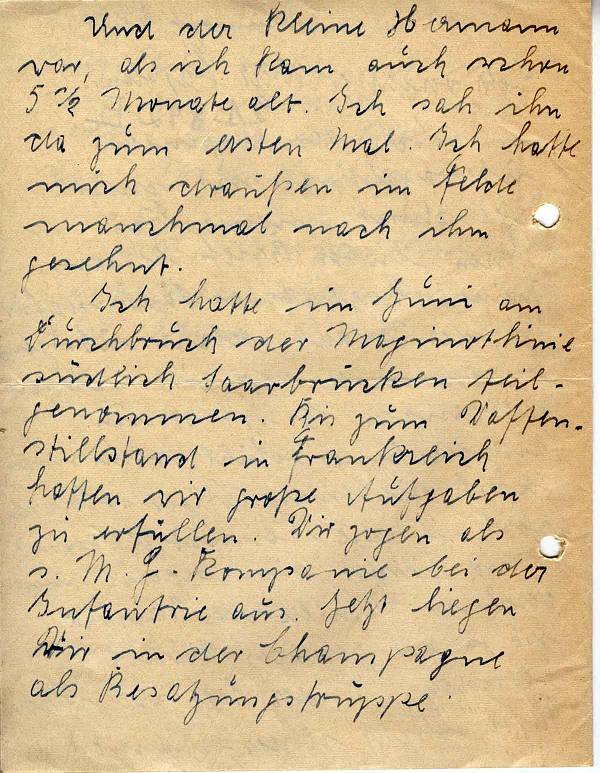 Und der kleine Hermann
war, als ich kam auch schon
5 1/2 Monate alt. Ich sah ihn
da zum ersten Mal. Ich hatte
mich draußen im Felde
manchmal nach ihm
gesehnt.
Ich hatte im Juni am
Durchbruch der Maginotlinie
südlich Saarbrücken teil-
genommen. Bis zum Waffen-
stillstand in Frankreich
hatten wir große Aufgaben
zu erfüllen. Wir zogen als
s. M. G. Kompanie bei der
Infantrie aus. Jetzt liegen
Wir in der Champagne
als Besatzungstruppe.